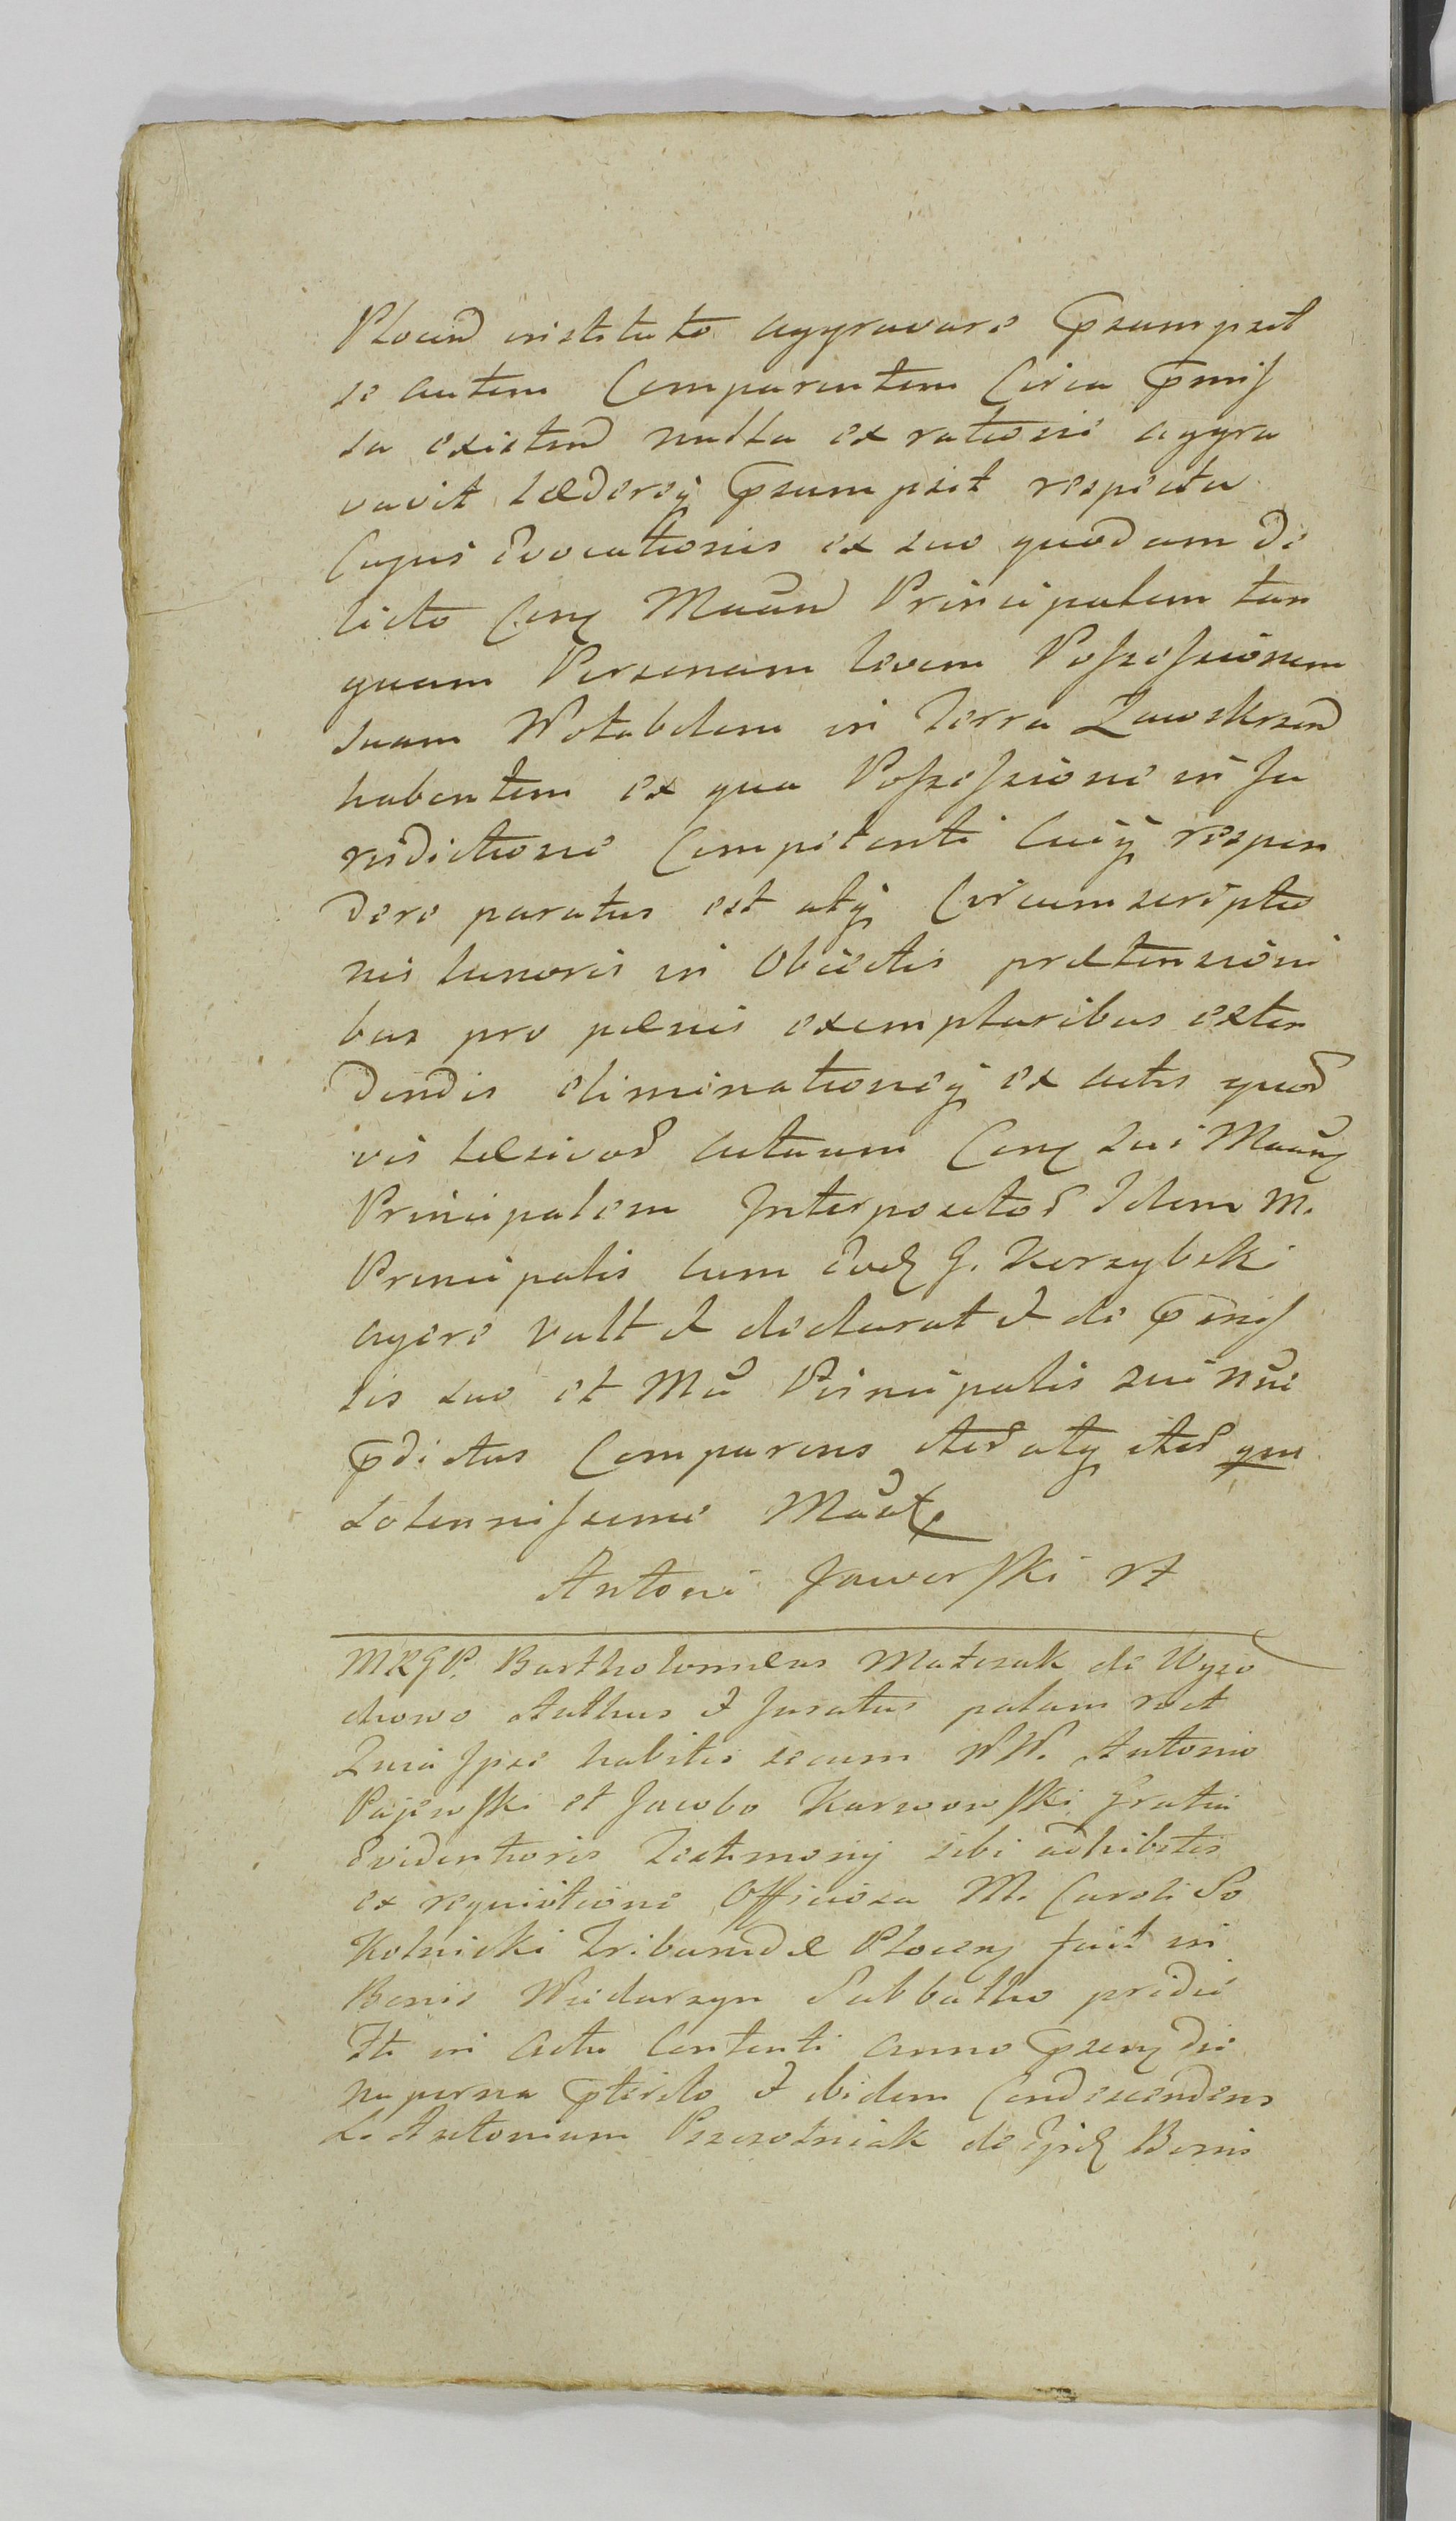 Plocen̄ instituto aggravare p̄sumpsit
se autem Comparentem Circa p̄mis
sa existen̄ nulla ex ratione aggra
vavit lædereq̃ p̄sumpsit respectu
Cujus Evocationis ex suo quodam de
licto Cenq Man̄ Principalem tan
quam Personam levem Possessionem
suam Notabilem in Terra Zawskrzen̄
habentem ex qua Possessione in Ju
risdictione Competenti Cuiq̃ respon
dere paratus est atq̃ Circumscriptio
nis tenoris in Obiectis prætensioni
bus pro pænis exemplaribus exten
dendis eliminationeq̃ ex actis quor
vis læsivor actuum Cenq sui Man̄
Principalem Interpositor Idem M.
Principalis cum Eod G. Korzybski
agere vult et declarat et de p̄mis
sis suo et M̄ Principalis sui nn̄e
p̄dictus Comparens iter atq̃ iter qm̄
solennissime Man̄t
Antoni Jaworski mp
MRGP. Bartholomæus Matczak de Wyso
chowo Authus et Juratus palam rect
Quia Ipse habitis secum NN. Antonio
Pajewski et Jacobo Karwowski Gratia
Evidentioris Testimonij sibi adhibitis
ex requisitione Officiosa M. Caroli So
kolnicki Tribunidæ Plocen̄ fuit in
Bonis Sabbatho pridie
Fti in actu Contenti anno p̄sen̄ die
nuperna p̄terito et ibidem Condescendens
L. Antonium de Ijsd Bonis